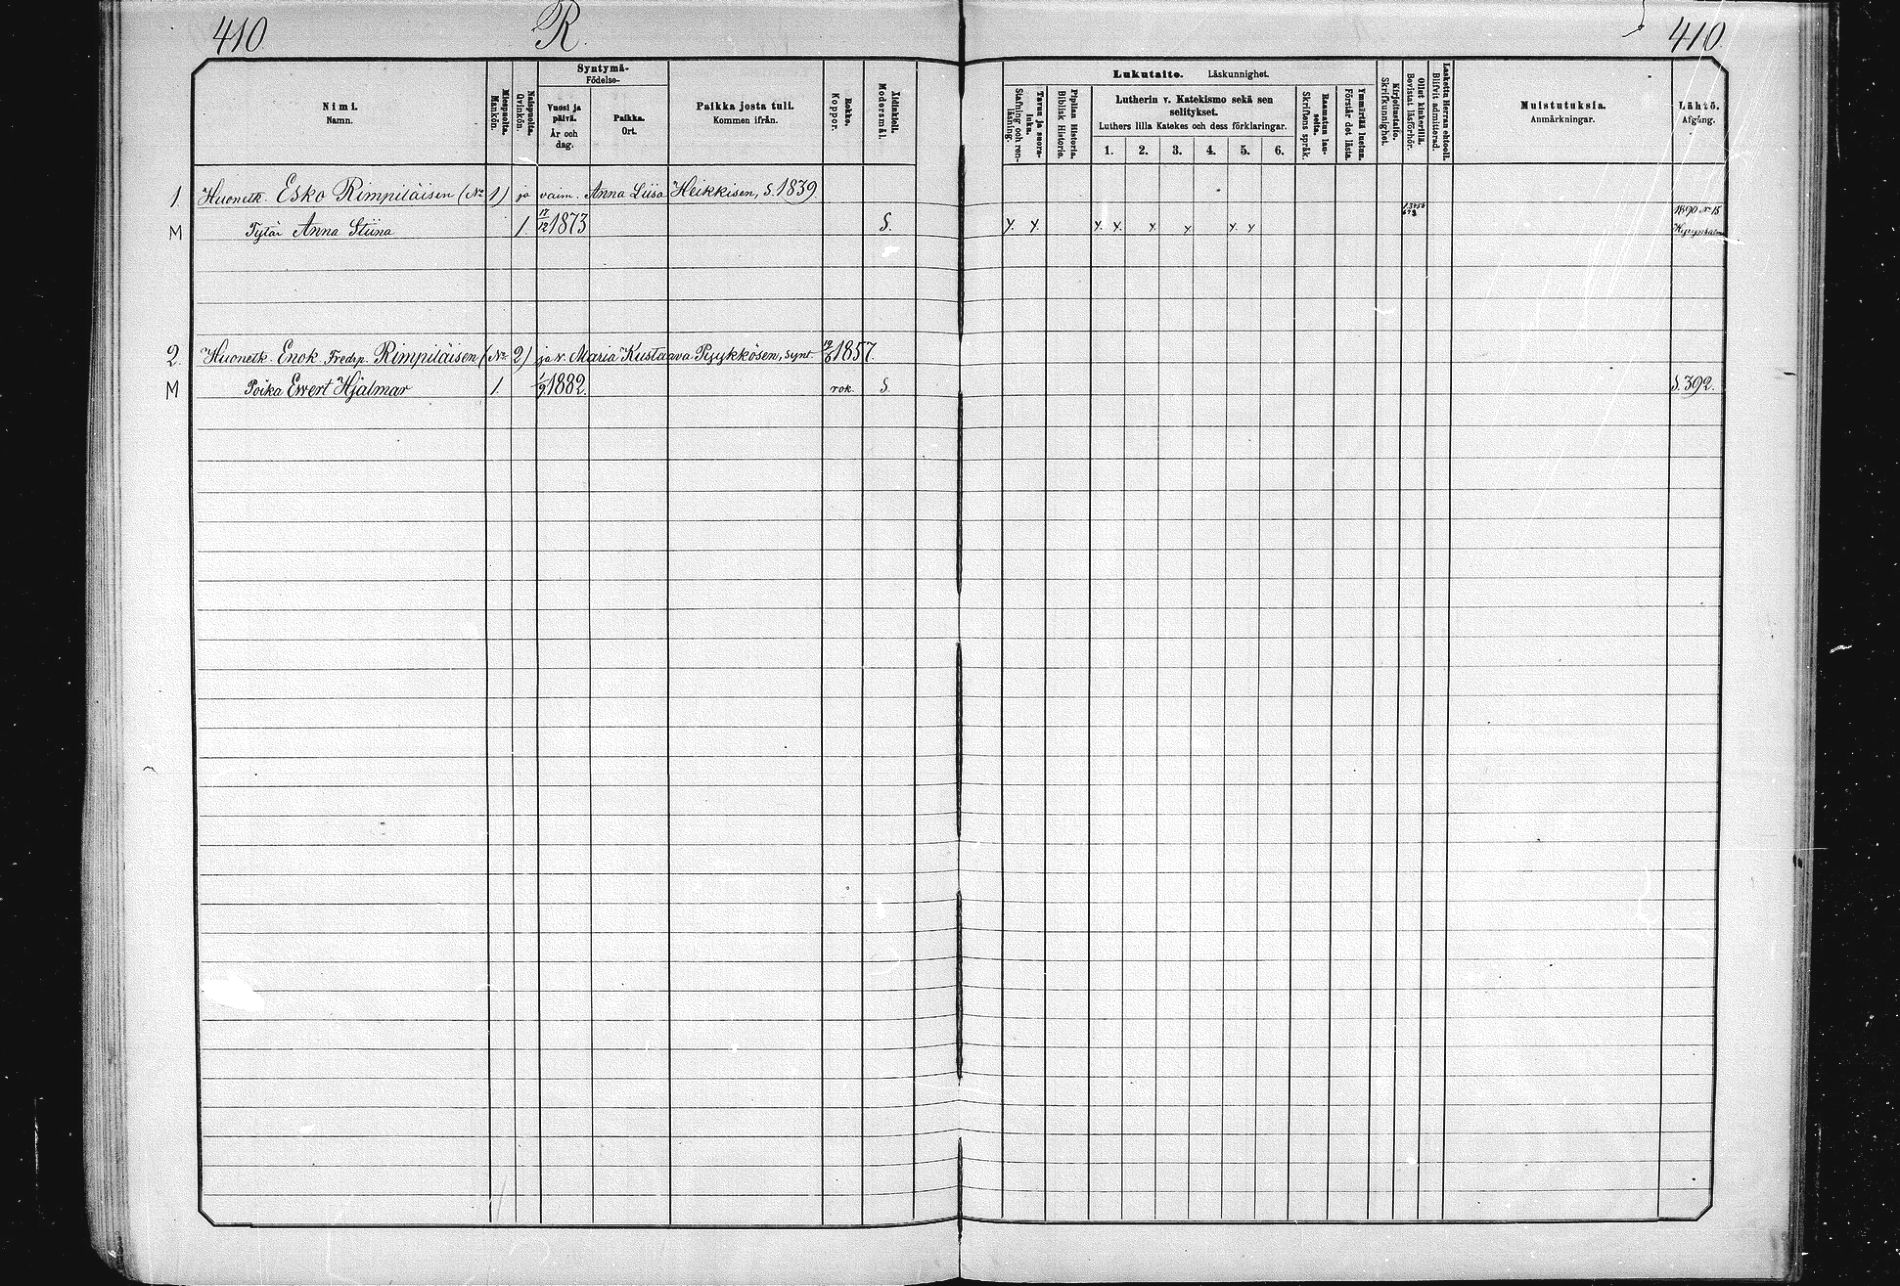 410
R.
410.
Syntymä-
Födelse-
Nimi.
Namn.
Miespuolia.
Mankön.
Naispuolia.
Qvinkön.
Vuosi ja päivä.
År och dag.
Paikka.
Ort.
Paikka josta tuli.
Kommen ifrån.
Rokko.
Koppor.
Äidinkieli.
Modersmål.
Lukutaito. Läskunnighet.
Tavuu ja suora-luku.
Stafning och ren-läsning.
Piplian Historia.
Biblisk Historie.
Lutherin v. Katekismo sekä sen selitykset.
Luthers lilla Katekes och dess förklaringar.
1. 2. 3. 4. 5. 6.
Raamatun lau-seita.
Skriftens språk.
Ymmärtää luetun.
Förstår det lästa.
Kirjoitustaito.
Skrifkunnighet.
Ollut kinkerillä.
Bevistat läsförhör.
Laskettu Herran ehtooll.
Blifvit admitterad.
Muistutuksia.
Anmärkningar.
Lähtö.
Afgång.
1. Huonetk. Esko Rimpiläisen (No 1) ja vaim. Anna Liisa Heikkisen, S. 1839.
M Tytär Anna Stiina 1 17/12 1873 S. 1890 No 15
2. Huonetk. Enok Fredrp. Rimpiläisen (No 2) ja v. Maria Kustaava Pyykkösen, synt. 1857.
M Poika Ewert Hjalmar 1. 1/9 1882. rok. S. S. 392.